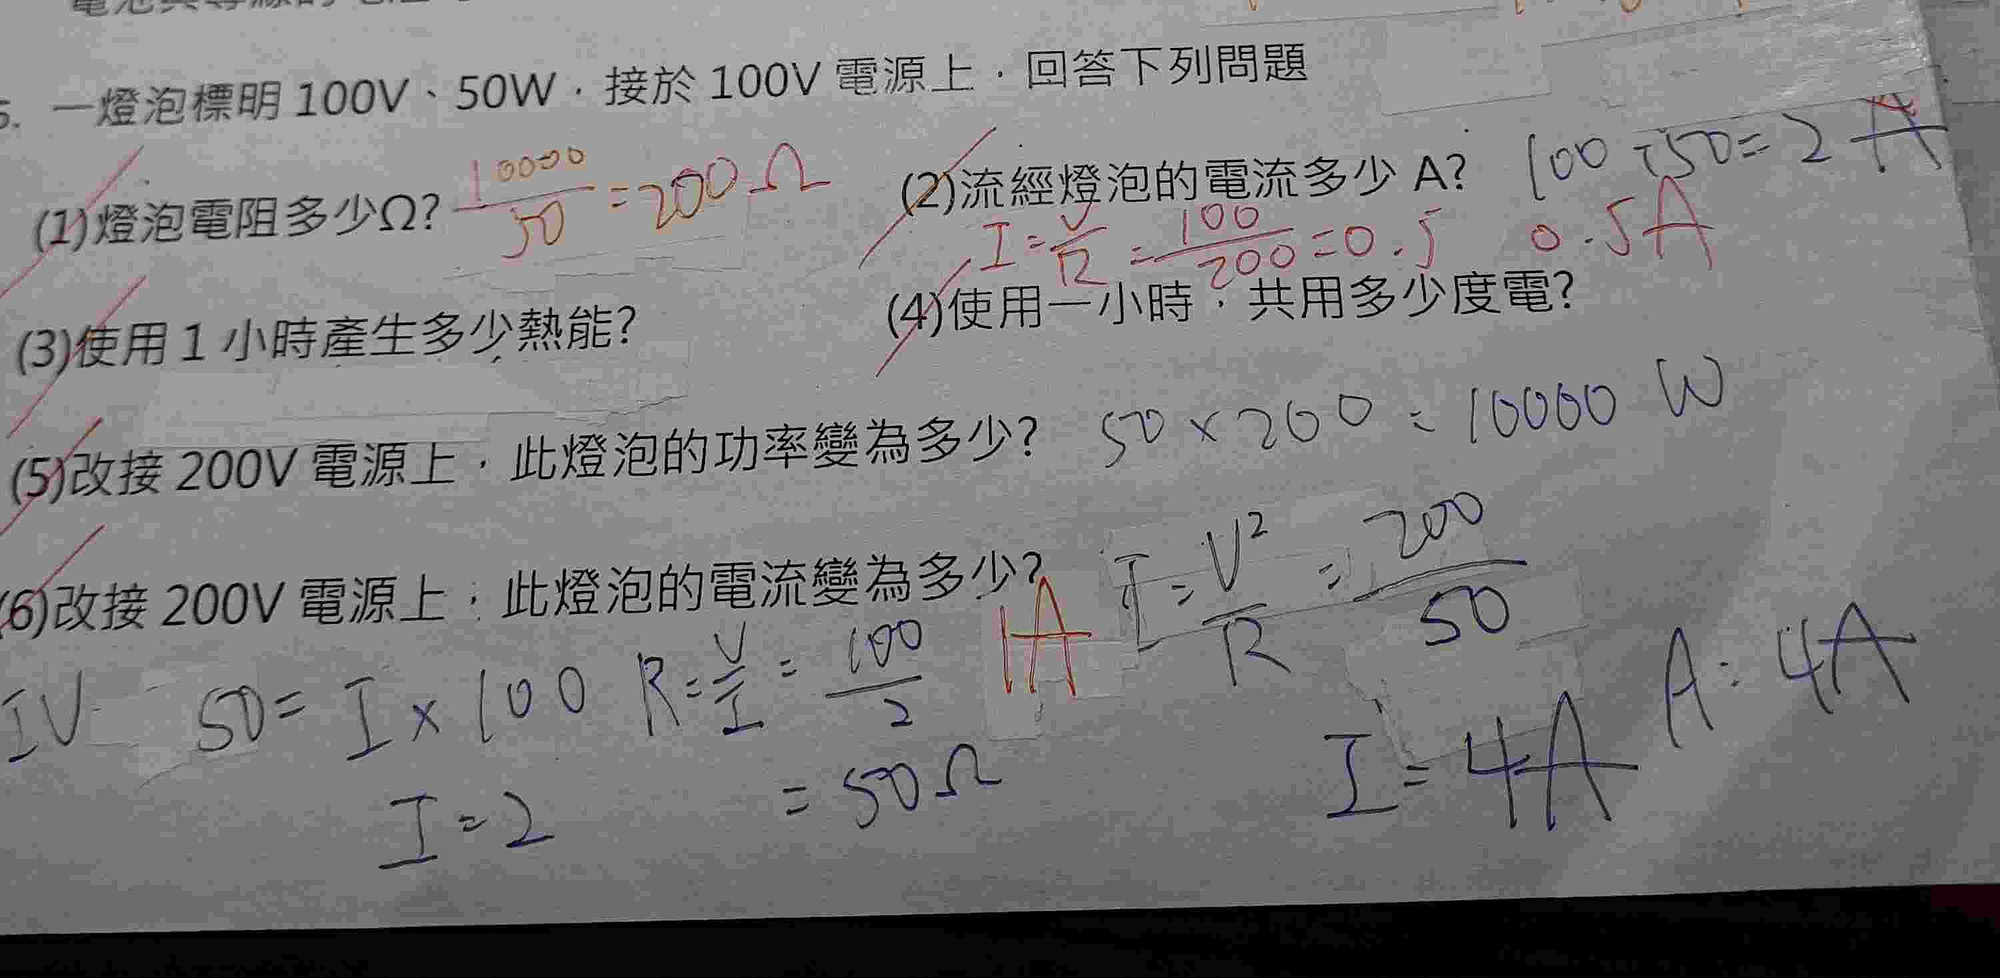 5. 一燈泡標明 100V、50W，接於 100V 電源上，回答下列問題
(1)燈泡電阻多少Ω? 10000/50 =200Ω
(2)流經燈泡的電流多少 A? 100÷50=2A
I=V/R=100/200=0.5 0.5A
(3)使用 1 小時產生多少熱能?
(4)使用一小時，共用多少度電?
(5)改接 200V 電源上，此燈泡的功率變為多少? 50×200=10000 W
(6)改接 200V 電源上，此燈泡的電流變為多少? 1A I=V²/R=200/50
IV 50=I×100 R=V/I=100/2 A:4A
I=2 =50Ω I=4A